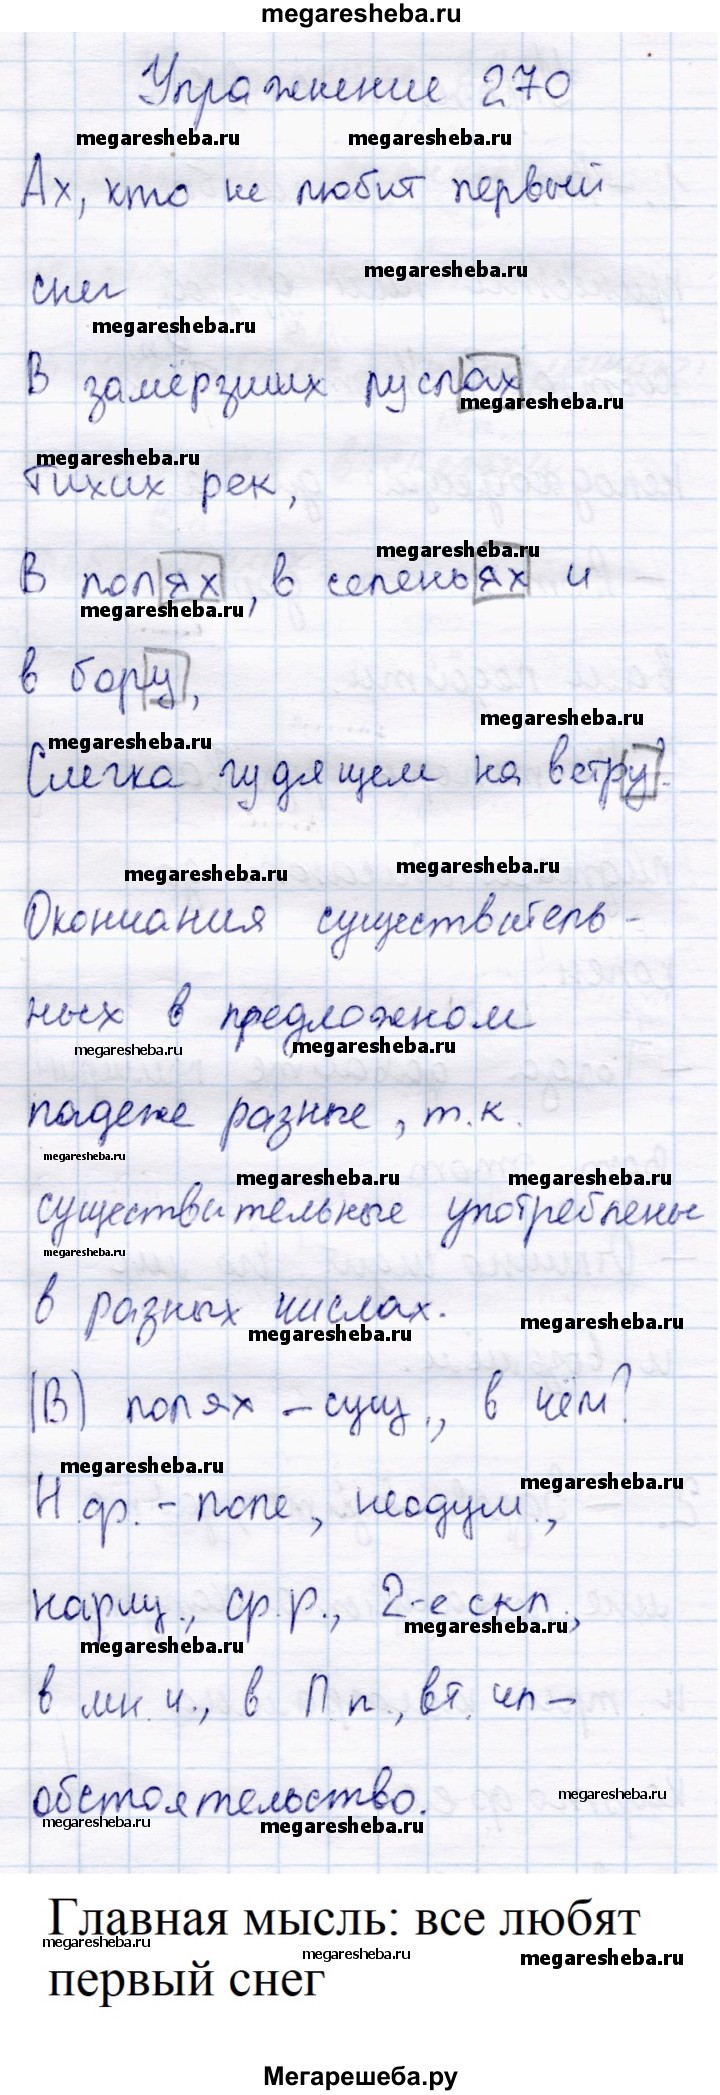 megaresheba.ru
Упражнение 270
megaresheba.ru megaresheba.ru
Ах, кто не любит первый
megaresheba.ru
снег
megaresheba.ru
В замёрзших руслах
megaresheba.ru
megaresheba.ru
тихих рек,
megaresheba.ru
В полях, в селеньях и
megaresheba.ru
в бору,
megaresheba.ru
megaresheba.ru
Слегка гудящем на ветру?
megaresheba.ru megaresheba.ru
Окончания существитель-
ных в предложном
megaresheba.ru megaresheba.ru
падеже разные, т.к.
megaresheba.ru
megaresheba.ru megaresheba.ru
существительные употреблены
megaresheba.ru
в разных числах.
megaresheba.ru megaresheba.ru
(В) полях – сущ., в чём?
megaresheba.ru
megaresheba.ru
Н.ф. - поле, неодуш.,
нариц., ср.р., 2-е скл.,
megaresheba.ru
megaresheba.ru
в мн.ч., в П.п., вт. чл –
обстоятельство.
megaresheba.ru
megaresheba.ru megaresheba.ru
Главная мысль: все любят
megaresheba.ru megaresheba.ru megaresheba.ru
первый снег
Мегарешеба.ру